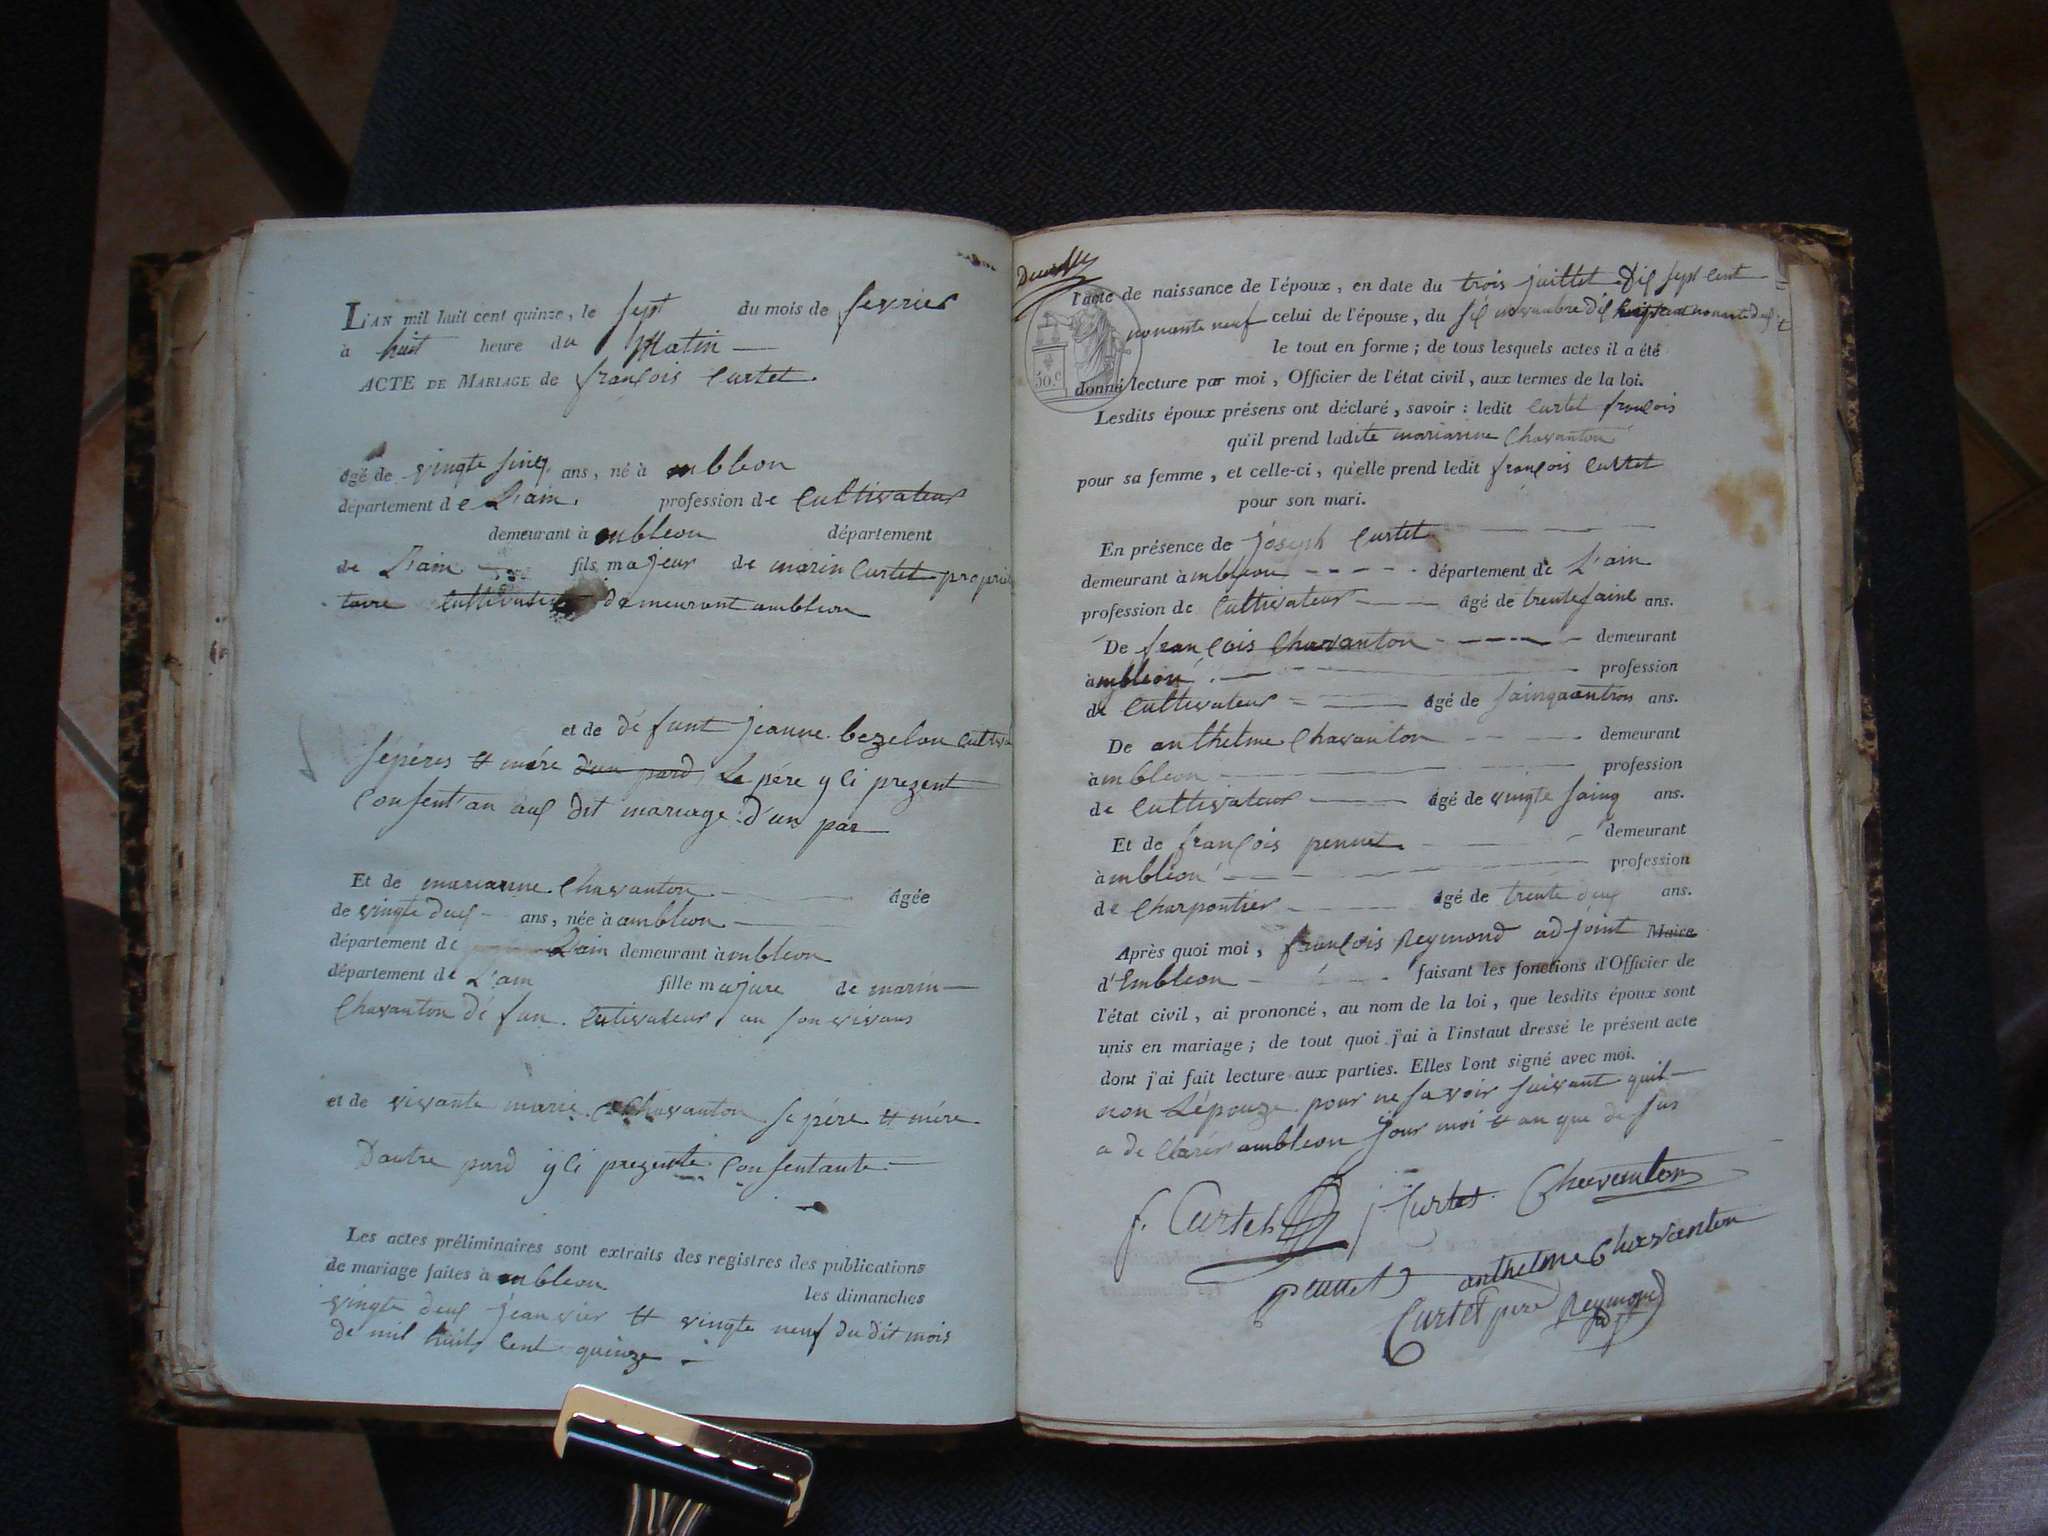 L'AN mil huit cent quinze, le sept du mois de fevrier
à huit heure du Matin
ACTE DE MARIAGE de françois Curtet.
agé de vingte sinq ans, né à ambleon
département de L'ain. profession de Cultivateur
demeurant à ambleon département
de L'ain fils majeur de marin Curtet propriè
taire Cultivateur demeurant ambleon
et de défunt jeanne bezelon Cultiva
sépéres et mére d'un pard, Le pére y Ci prezent
Consent'an aux dit mariage d'un par
Et de marianne Chavanton âgée
de vingte deux ans, née à ambleon
département de Lain demeurant àmbleon
département de L'ain fille majure de marin
Chavanton dé fun. Cutivateur au son vivans
et de vivante marie Chavanton se pére et mére
D'autre pard y Ci prezente Consentante
Les actes préliminaires sont extraits des registres des publications
de mariage faites à ambleon les dimanches
vingte deux jeanvier et vingte neuf du dit mois
de mil huit Cent quinze
l'acte de naissance de l'époux, en date du trois juillet dix sept cent
nonante neuf celui de l'épouse, du six novembre dix
50.c
le tout en forme; de tous lesquels actes il a été
donné lecture par moi, Officier de l'état civil, aux termes de la loi.
Lesdits époux présens ont déclaré, savoir: ledit Curtet françois
qu'il prend ladite marianne Chavanton
pour sa femme, et celle-ci, qu'elle prend ledit françois Curtet
pour son mari.
En présence de joseph Curtet
demeurant àmbleon département de L'ain
profession de Cultivateur âgé de trente sainc ans.
De françois Chavanton demeurant
àmbleon profession
de Cultivateur âgé de sainquantrois ans.
De anthelme Chavanton demeurant
àmbleon profession
de Cultivateur âgé de vingte sainq ans.
Et de françois pennet demeurant
àmbleon profession
de Charpontier âgé de trente deux ans.
Après quoi moi, françois Reymond adjoint Maire
d'Embleon faisant les fonctions d'Officier de
l'état civil, ai prononcé, au nom de la loi, que lesdits époux sont
unis en mariage; de tout quoi j'ai à l'instant dressé le présent acte
dont j'ai fait lecture aux parties. Elles l'ont signé avec moi.
non L'épouze pour ne savoir suivant quil
a de Clarér ambleon jour moi et an que de sus
f. Curtet j. Curtet Chavanton
pennet anthelme Chavanton
Curtet pere Reymond